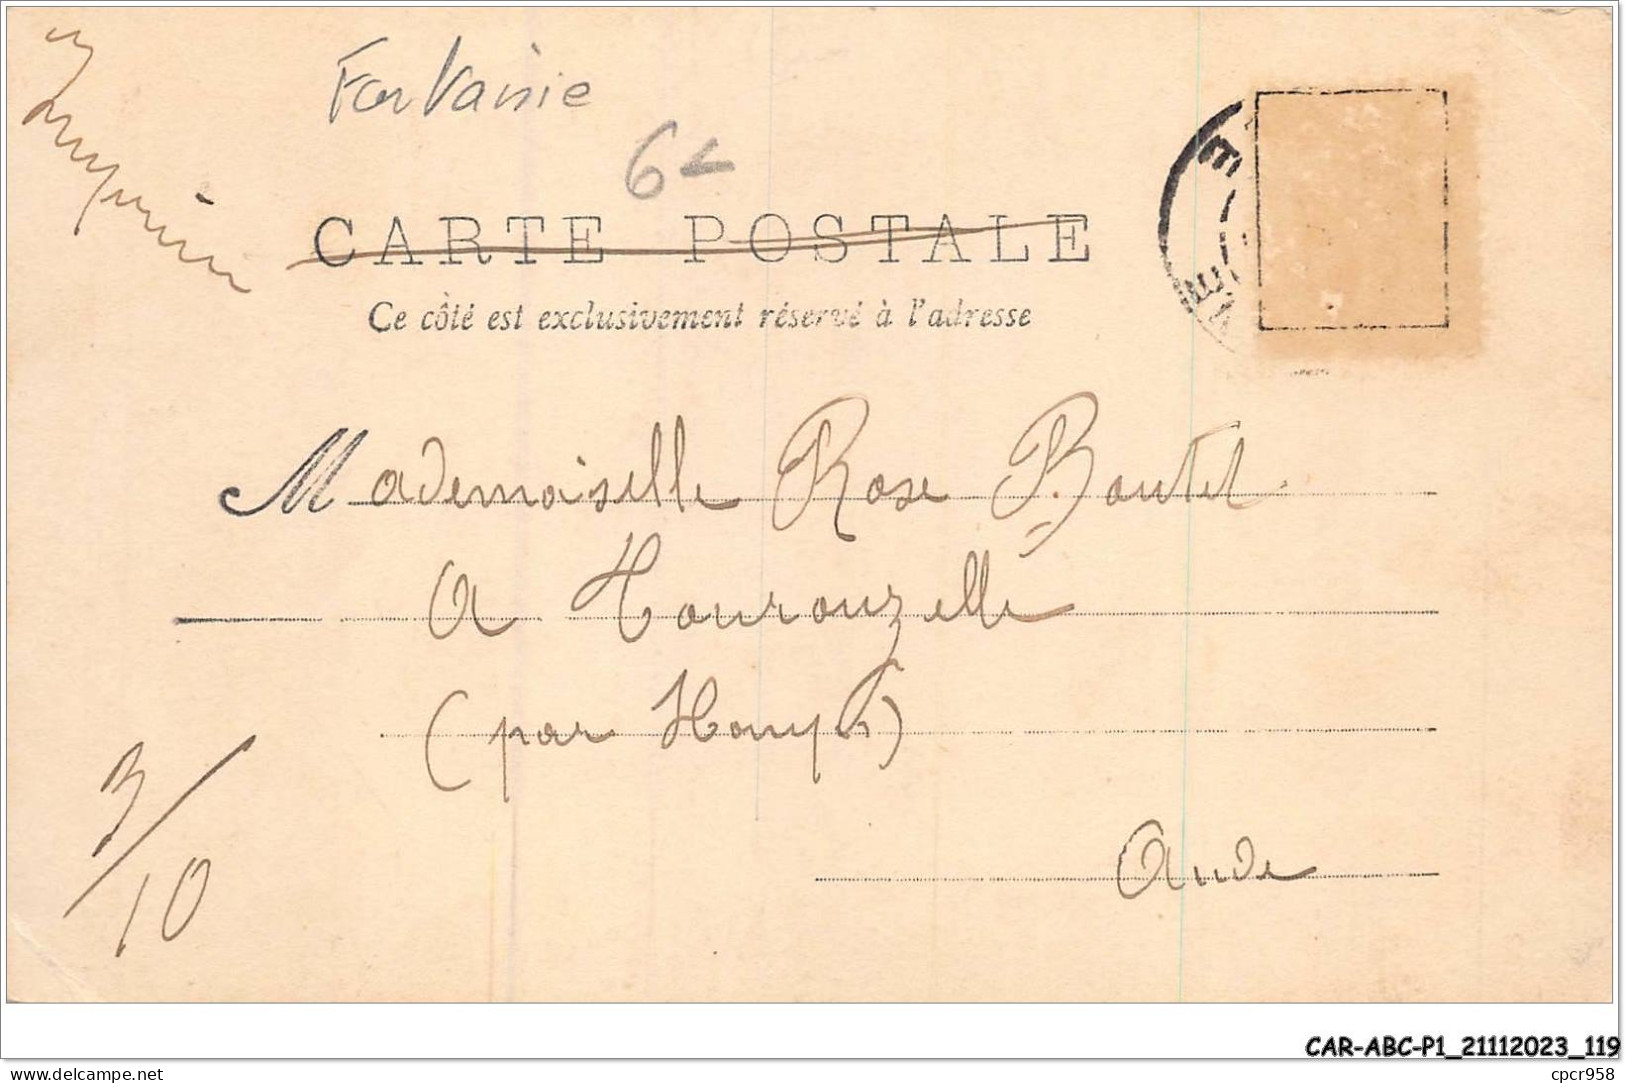 Imprimé
Fontainie
6
CARTE POSTALE
Ce côté est exclusivement réservé à l'adresse
Mademoiselle Rose Boutet
A Tourouzelle
(par Homps)
Aude
3/10
CAR-ABC-P1_21112023_119
cpcr958